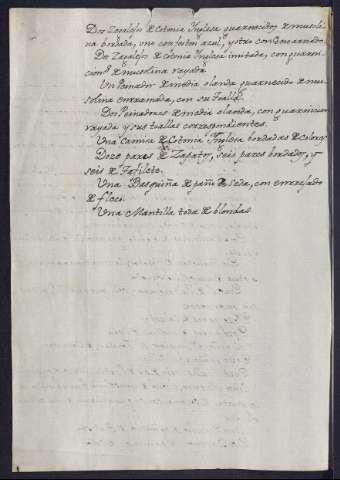 Dos Zagalejos de Cotonia Inglesa guarnecidos de museli-
na bordada, uno con forro azul, y otro con encarnado.
Dos Zagalejos de Cotonia Inglesa imitada, con guarni-
cion de muselina rayada.
Un Peinador de media olanda guarnecido de mu-
selina enramada, con su Toalla.
Dos Peinadores de media olanda, con guarnicion
rayada y sus toallas correspondientes.
Una Camisa de Cotonia Inglesa bordada de colores.
Doze pares de Zapatos, seis pares bordados, y
seis de Tafilete.
Una Basquiña de paño de seda, con enrejado
de fleco.
Una Mantilla toda de blondas